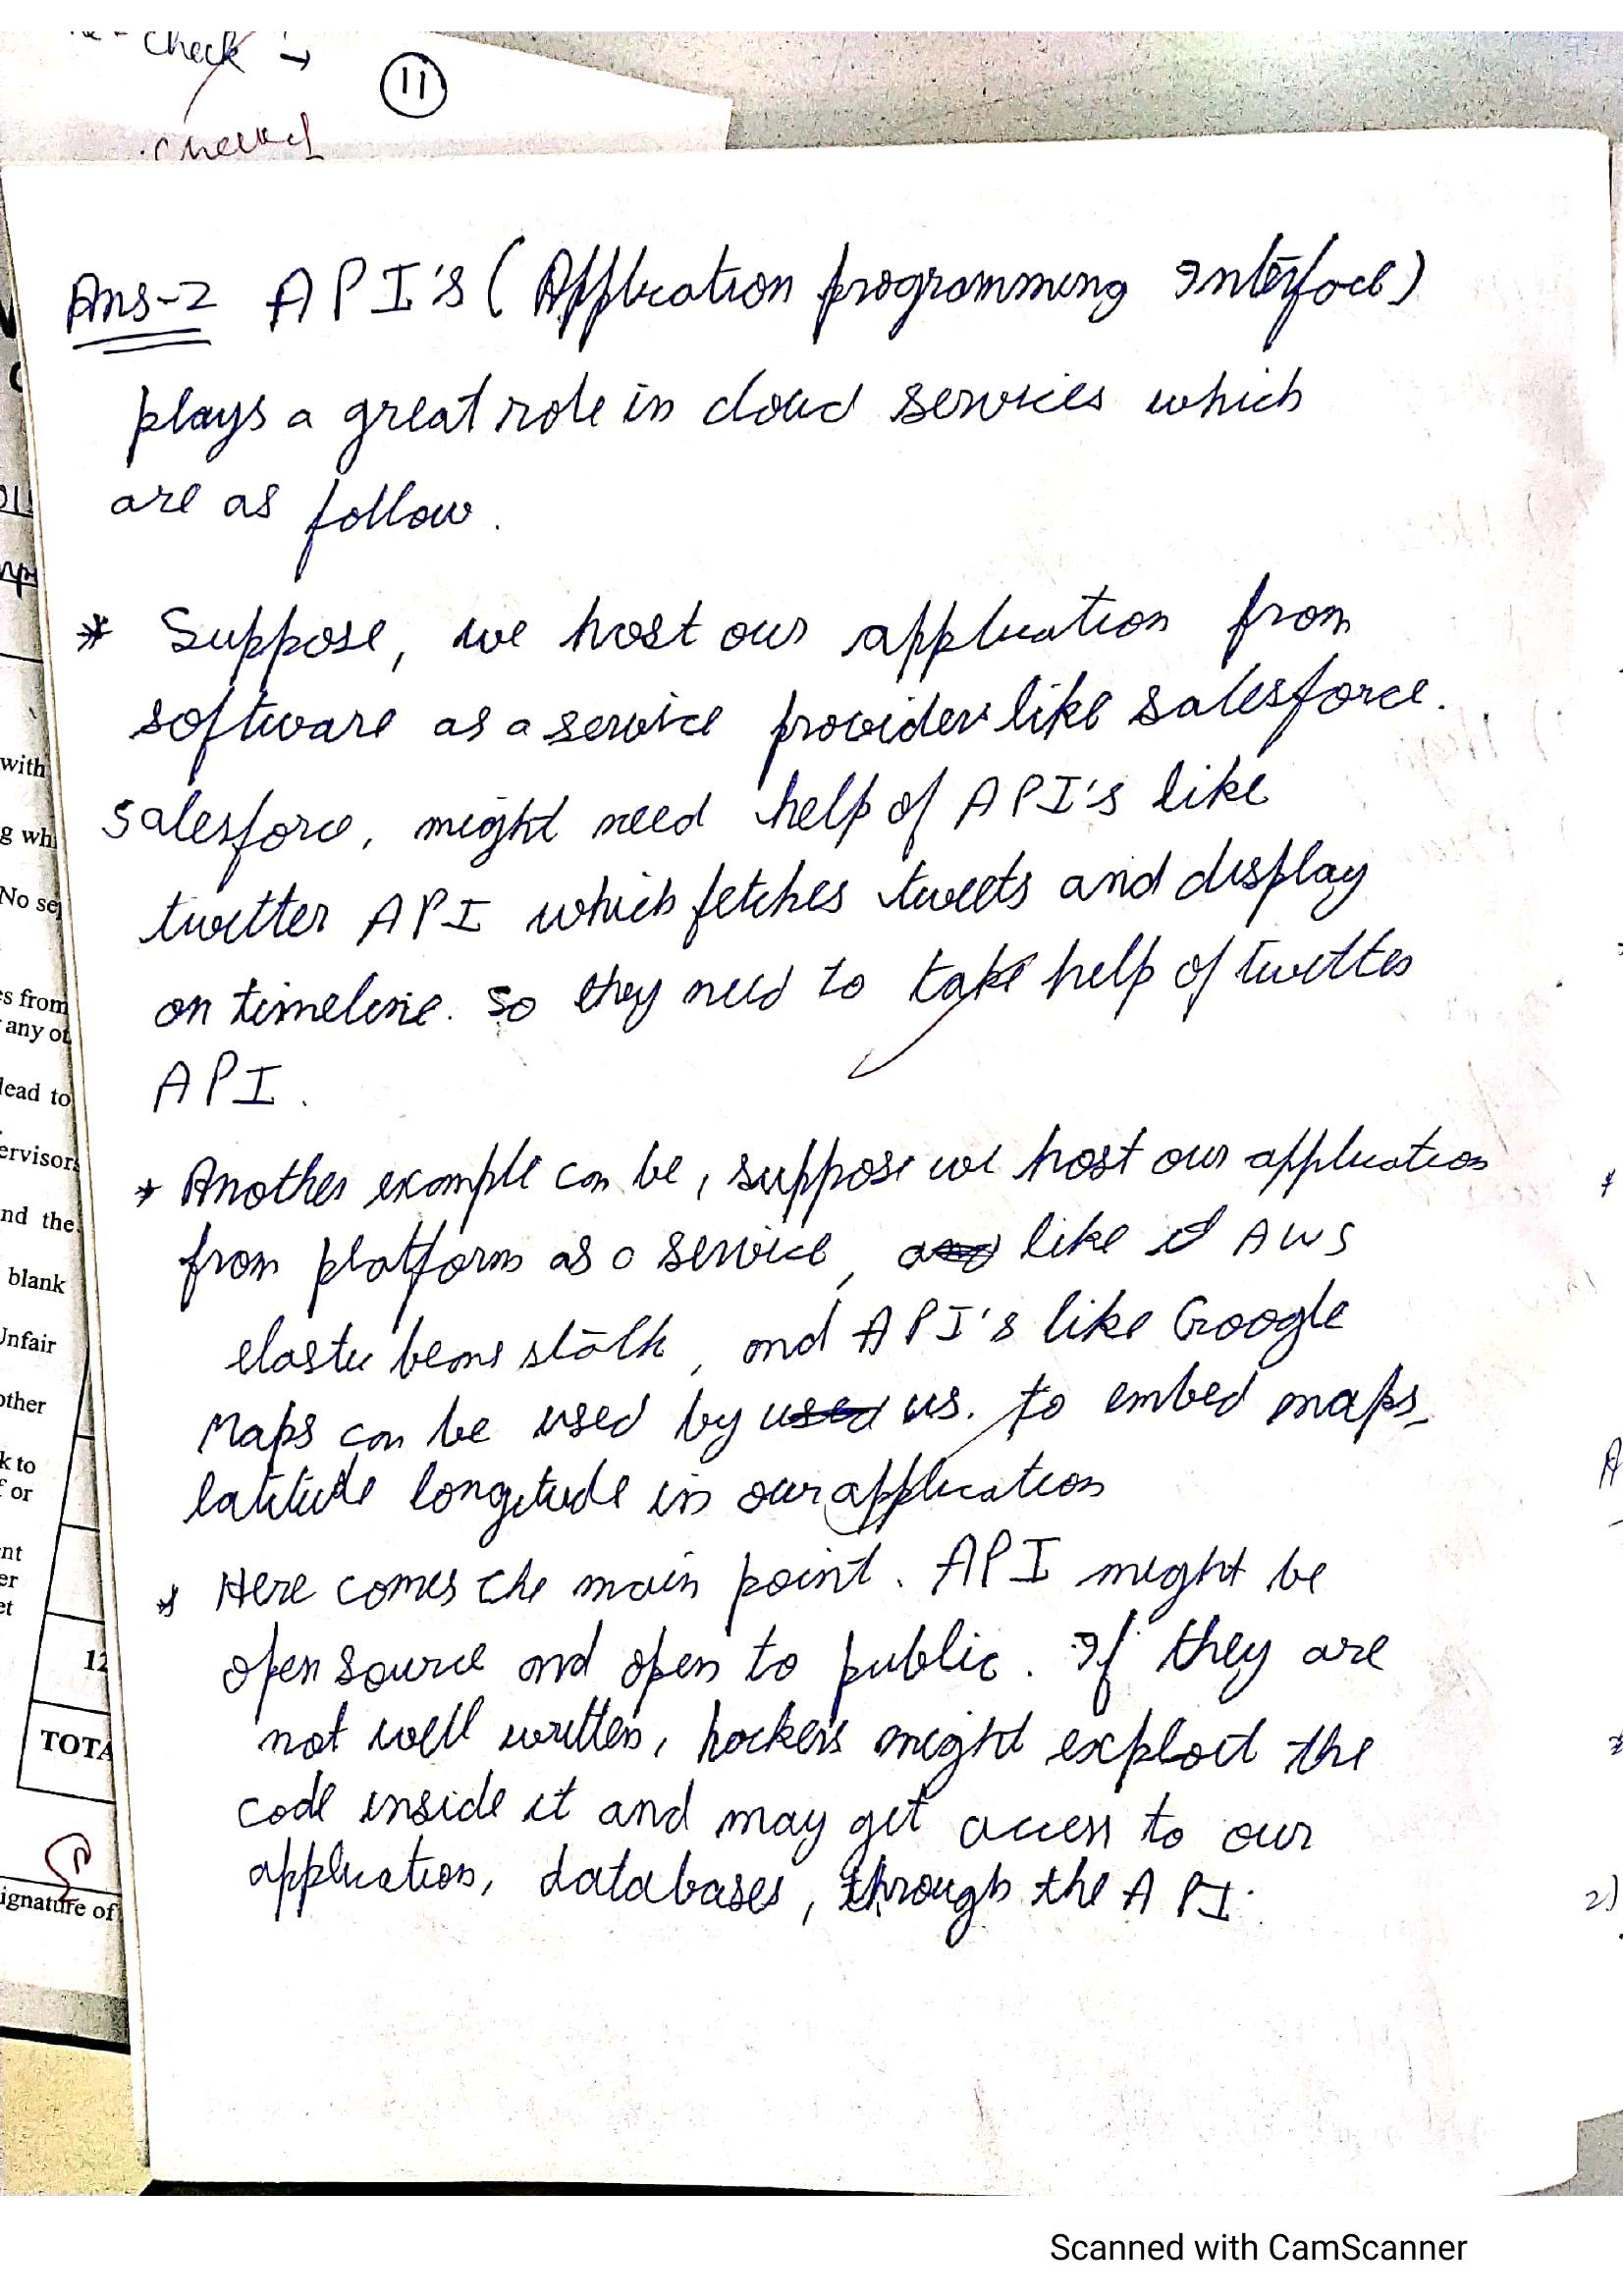 Check →
11
checked
Ans-2 API's (Application programming Interface)
plays a great role in cloud services which
are as follow.
* Suppose, we host our application from
software as a service provider like salesforce.
salesforce, might need help of API's like
twitter API which fetches tweets and display
on timeline. so they need to take help of twitter
API.
* Another example can be, suppose we host our application
from platform as a service, and like AWS
elastic beans stalk, and API's like Google
Maps can be used by used us. to embed maps,
latitude longitude in our application
* Here comes the main point. API might be
open source and open to public. If they are
not well written, hackers might exploit the
code inside it and may get access to our
application, databases, through the API.
with
g wh
No se
es from
any ot
lead to
ervisor
nd the
blank
Unfair
other
k to
f or
nt
er
et
12
TOTA
ignature of
2)
Scanned with CamScanner